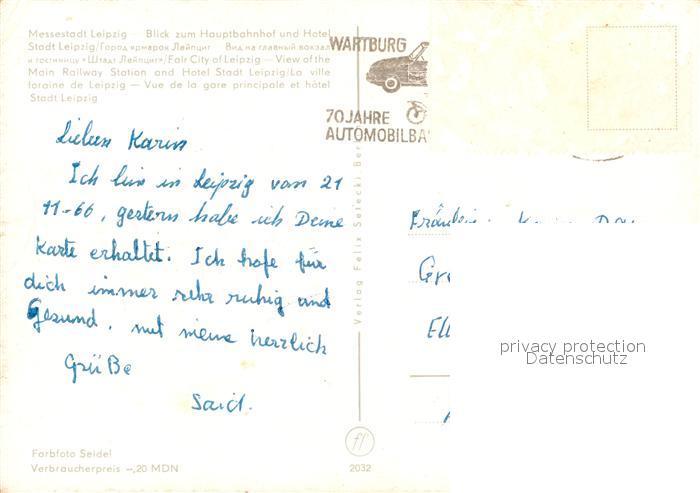 Messestadt Leipzig — Blick zum Hauptbahnhof und Hotel
Stadt Leipzig/Город ярмарок Лейпциг Вид на главный вокзал
и гостиницу «Штадт Лейпциг»/Fair City of Leipzig — View of the
Main Railway Station and Hotel Stadt Leipzig/La ville
foraine de Leipzig — Vue de la gare principale et hôtel
Stadt Leipzig
WARTBURG
70 JAHRE
AUTOMOBILBA
Lieben Karin
Ich bin in Leipzig von 21
11-66, gestern habe ich Deine
Karte erhaltet. Ich hofe für
dich immer sehr ruhig und
Gesund. mit meine herzlich
Grüße
Said.
Verlag Felix Setecki Ber
Fräulein
Gr
Ell
privacy protection
Datenschutz
Farbfoto Seidel
Verbraucherpreis –,20 MDN
ff
2032